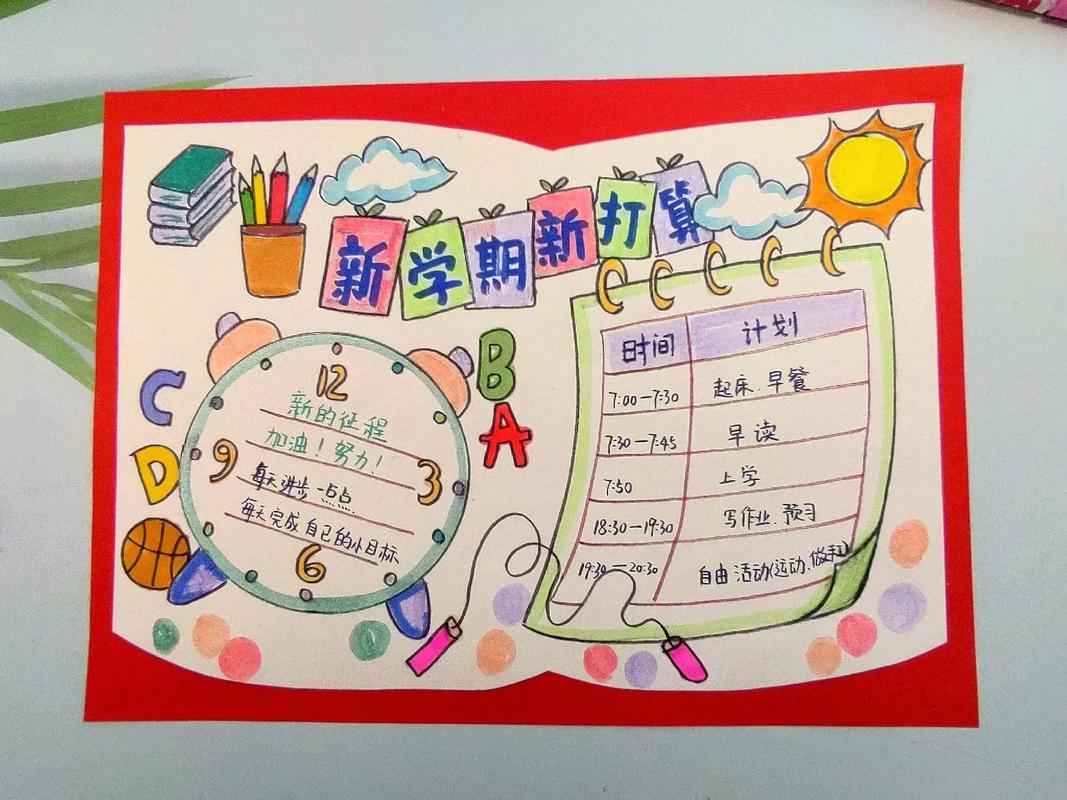 新学期新打算
12
新的征程
加油！努力！
每天进步一点点
每天完成自己的小目标
9
3
6
B
A
C
D
时间 计划
7:00—7:30 起床、早餐
7:30—7:45 早读
7:50 上学
18:30—19:30 写作业、预习
19:30—20:30 自由活动(运动、做手工)